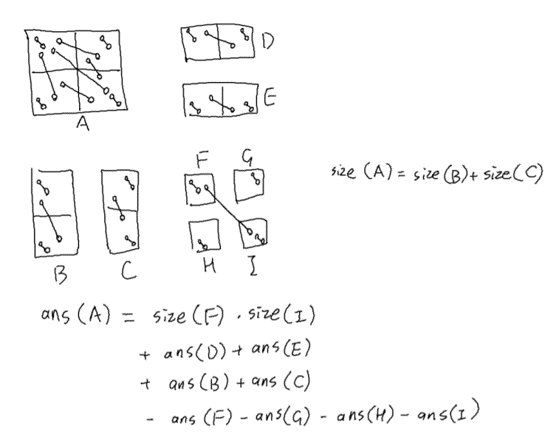 A
D
E
B
C
F
G
H
I
size (A) = size (B) + size (C)
ans (A) = size (F) · size (I)
+ ans (D) + ans (E)
+ ans (B) + ans (C)
- ans (F) - ans (G) - ans (H) - ans (I)